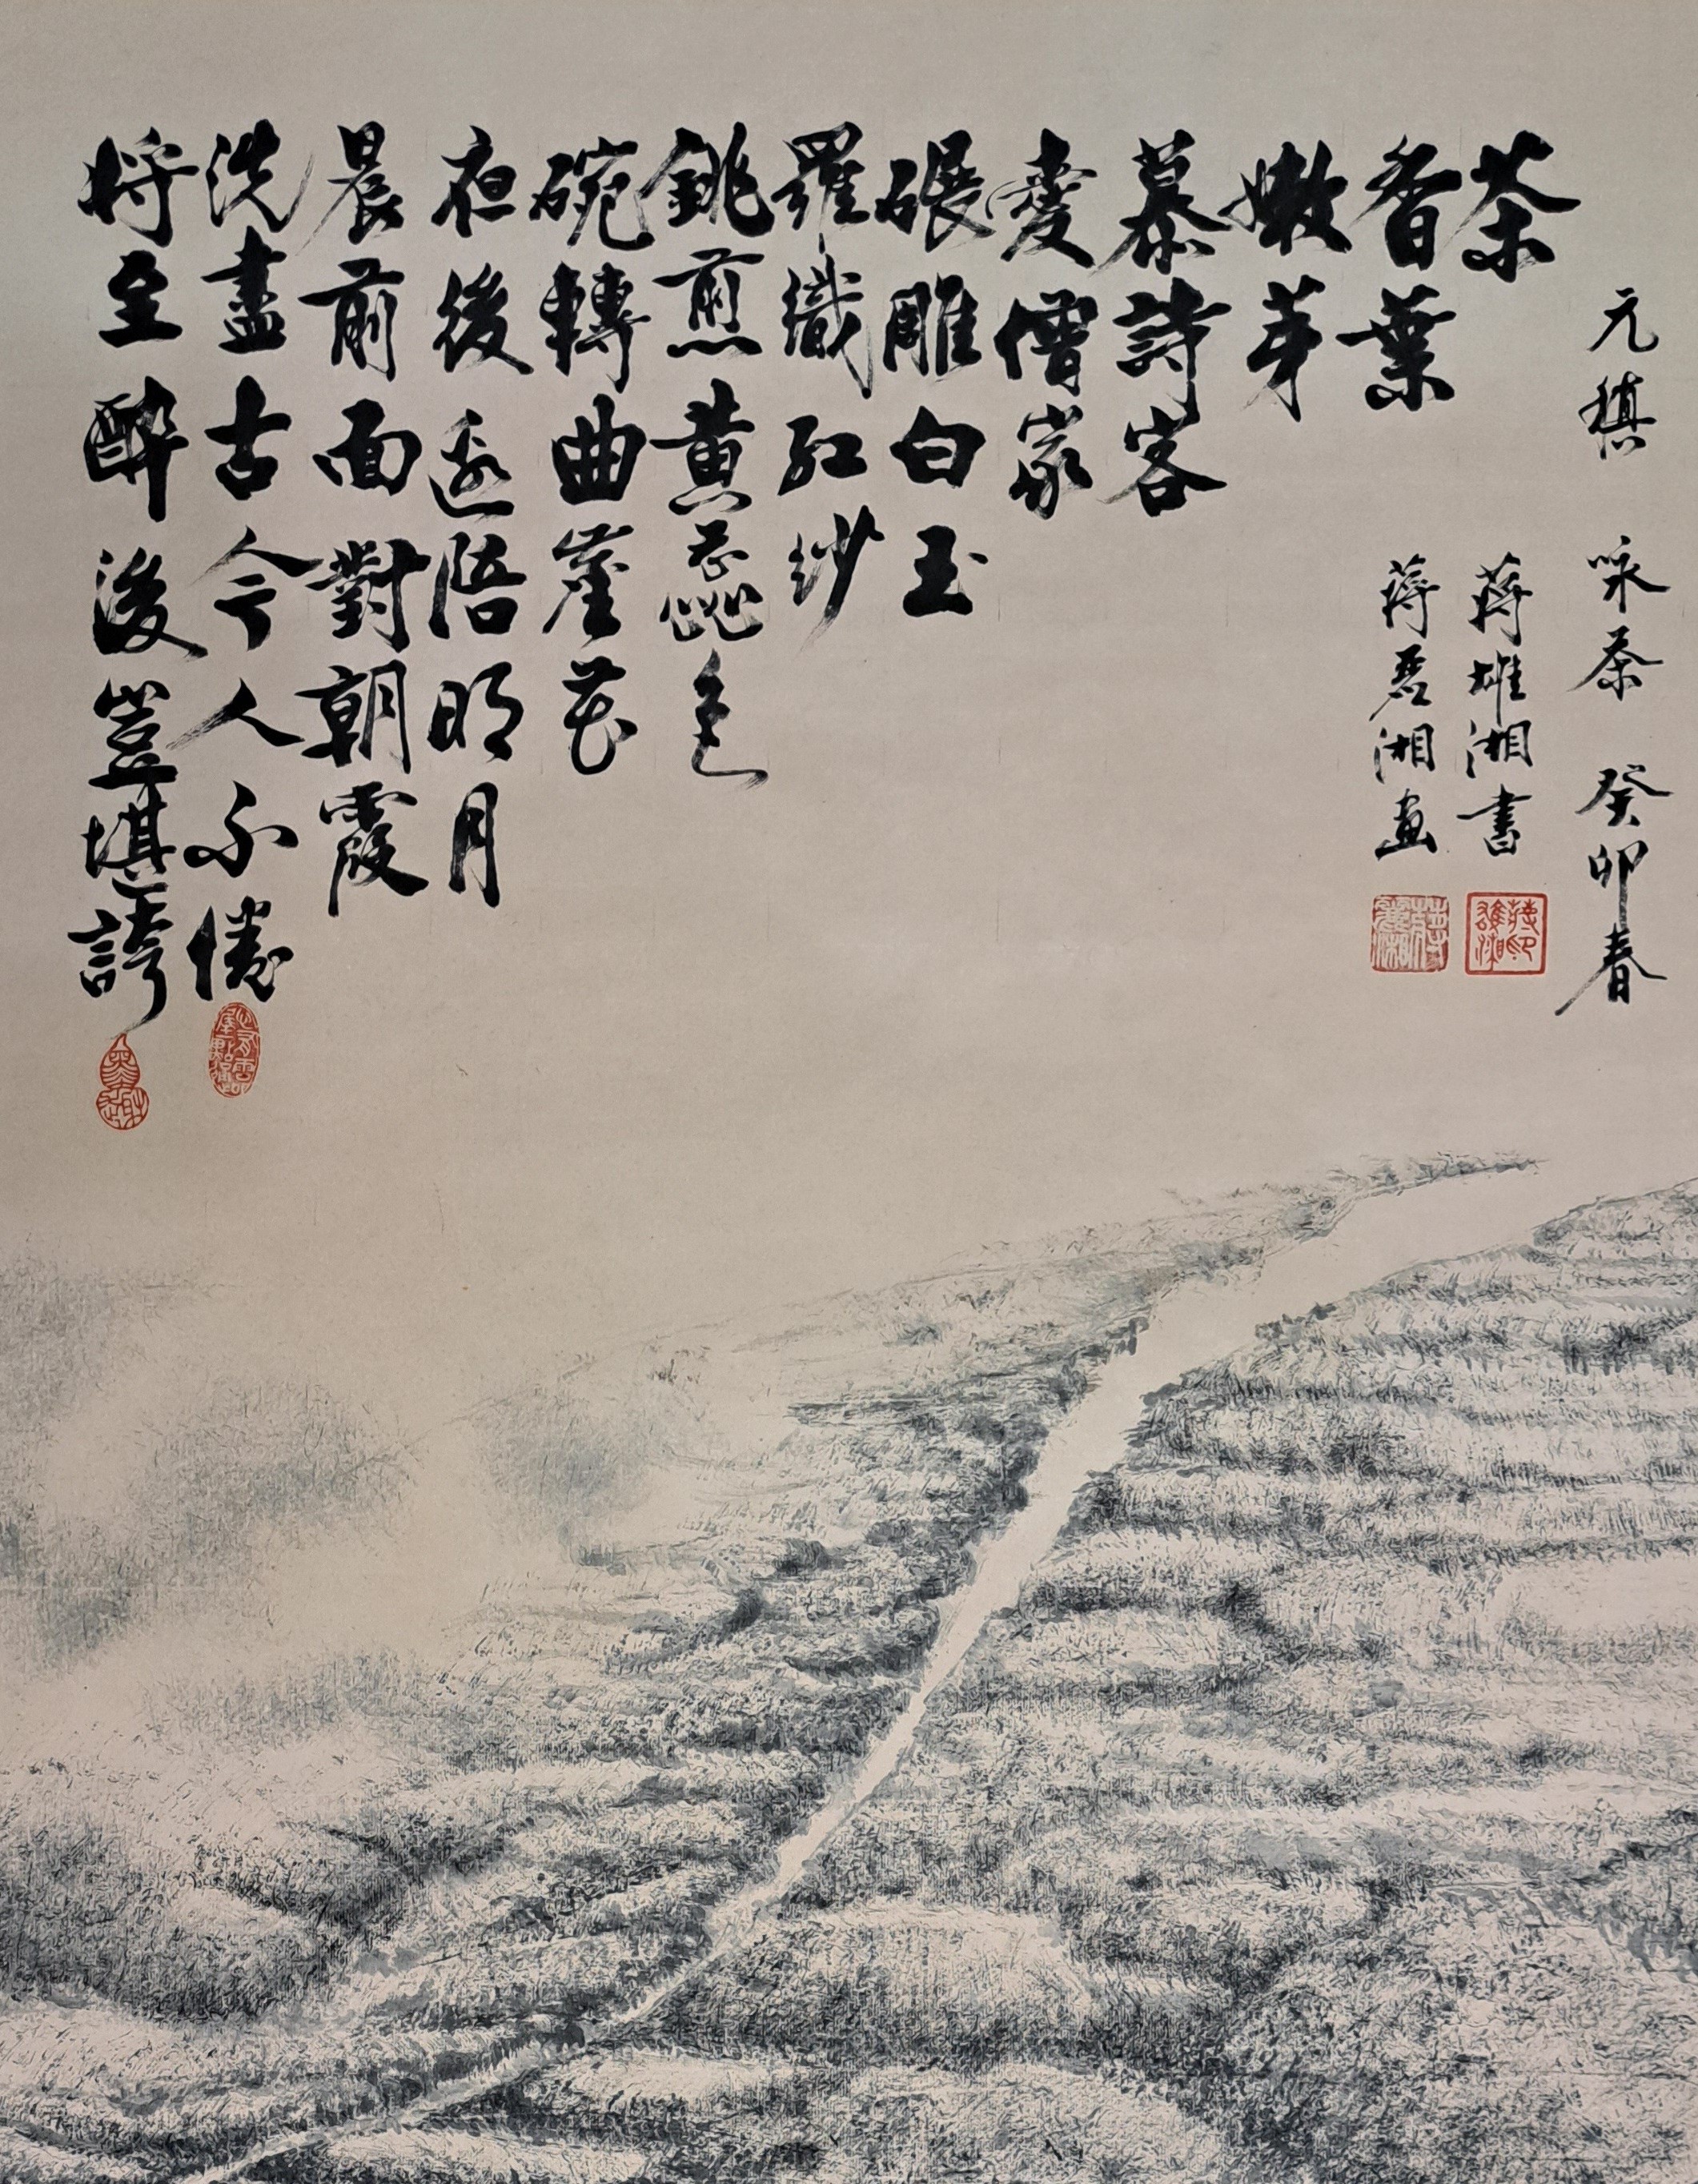 元稹 咏茶 癸卯春
茶
香葉
嫩芽
慕詩客
愛僧家
碾雕白玉
羅織紅紗
銚煎黄蕊色
碗轉曲塵花
夜後邀陪明月
晨前面對朝霞
洗盡古今人不倦
將至醉後豈堪誇
蔣雄湘書
蔣湘畫
蔣雄湘印